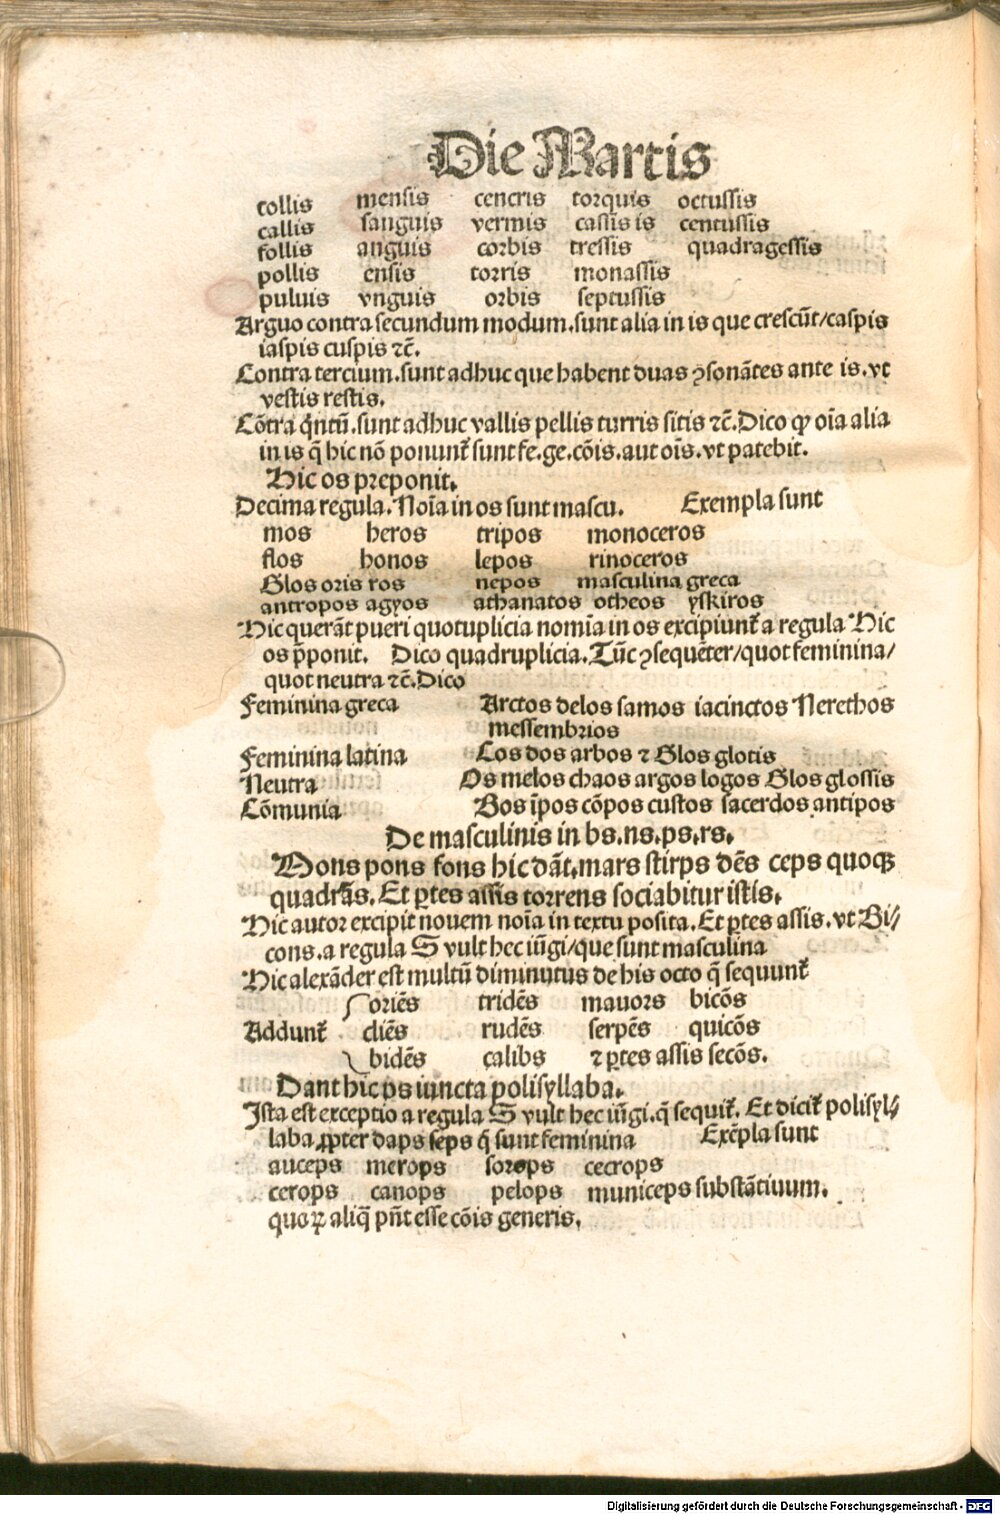 Die Martis
collis mensis cencris torquis octussis
callis sanguis vermis cassis is centussis
follis anguis corbis tressis quadragessis
pollis ensis torris monassis
puluis vnguis orbis septussis
Arguo contra secundum modum.sunt alia in is que crescūt/caspis
iaspis cuspis ⁊c̄.
Contra tercium.sunt adhuc que habent duas ꝯsonātes ante is.vt
vestis restis.
Cōtra q̄ntū.sunt adhuc vallis pellis turris sitis ⁊c̄.Dico ꝙ oīa alia
in is q̄ hic nō ponunt᷑ sunt fe.ge.cōis.aut oīs.vt patebit.
Hic os preponit.
Decima regula.Noīa in os sunt mascu. Exempla sunt
mos heros tripos monoceros
flos honos lepos rinoceros
Glos oris ros nepos masculina greca
antropos agyos athanatos otheos yskiros
Hic querāt pueri quotuplicia nomīa in os excipiunt᷑ a regula Hic
os p̄ponit. Dico quadruplicia.Tūc ꝯsequēter/quot feminina/
quot neutra ⁊c̄.Dico
Feminina greca Arctos delos samos iacinctos Nerethos
messembrios
Feminina latina Cos dos arbos ⁊ Glos glotis
Neutra Os melos chaos argos logos Glos glossis
Cōmunia Bos īpos cōpos custos sacerdos antipos
De masculinis in bs.ns.ps.rs.
Mons pons fons hic dāt.mars stirps dēs ceps quoqꝫ
quadrās.Et ꝑtes assis torrens sociabitur istis.
Hic autor excipit nouem noīa in textu posita.Et ꝑtes assis.vt Bi⸗
cons.a regula S vult hec iūgi/que sunt masculina
Hic alexāder est multū diminutus de his octo q̄ sequunt᷑
oriēs tridēs mauors bicōs
Addunt᷑ cliēs rudēs serpēs quicōs
bidēs calibs ⁊ ꝑtes assis secōs.
Dant hic ps iuncta polisyllaba.
Ista est exceptio a regula S vult hec iūgi.q̄ sequit᷑. Et dicit᷑ polisyl⸗
laba ꝓpter daps seps q̄ sunt feminina Exēpla sunt
auceps merops sorops cecrops
cerops canops pelops municeps substātiuum.
quoꝝ aliq̄ pn̄t esse cōis generis.
Digitalisierung gefördert durch die Deutsche Forschungsgemeinschaft - DFG